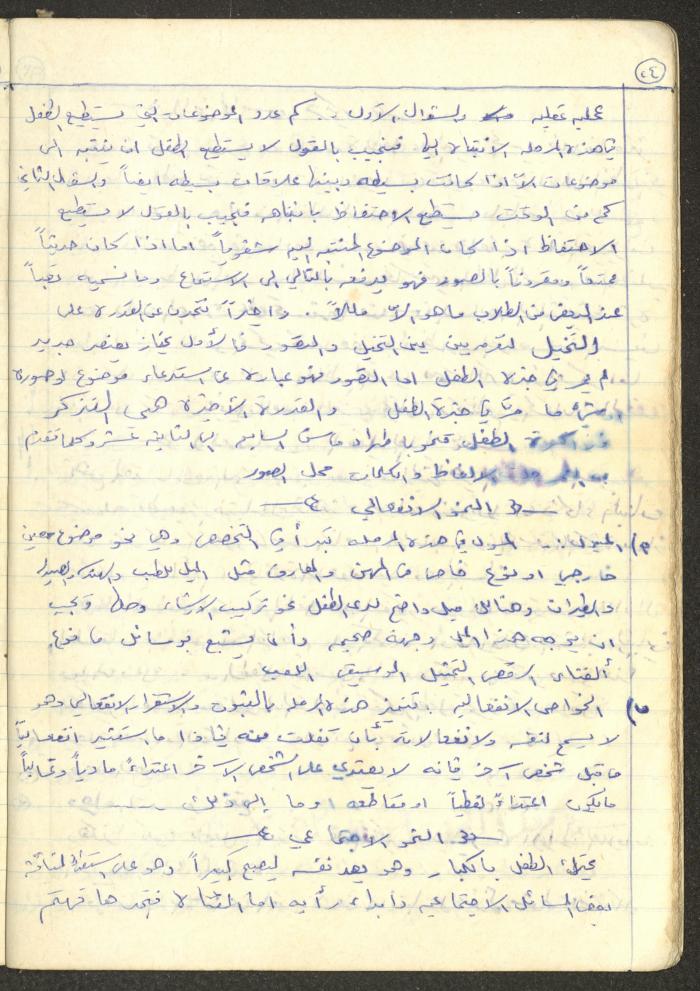 ٢٤
عملية عقلية والسؤال الأول: كم عدد الموضوعات التي يستطيع الطفل
في هذه المرحلة الانتباه اليها فنجيب بالقول لا يستطيع الطفل ان ينتبه الى
موضوعات الا اذا كانت بسيطه وبينها علاقات بسيطه ايضاً والسؤال الثاني
كم من الوقت يستطيع الاحتفاظ بانتباهه فنجيب بالقول لا يستطيع
الاحتفاظ اذا كان الموضوع المنتبه اليه شفوياً اما اذا كان حديثاً
ممتعاً ومقروناً بالصور فهو يدفعه بالتالي الى الاستمتاع وما نسميه تعباً
عند البعض من الطلاب ما هو الا مللاً. واخيراً نتحدث عن القدرة على
التخيل لنفرق بين التخيل والتصور فالأول يمتاز بعنصر جديد
لم يمر في خبرة الطفل اما التصور فهو عبارة عن استدعاء موضوع او صورة
ما مرّ في خبرة الطفل والقدرة الأخيرة هي التذكر
الطفل تنمو باطراد من السابعة الى الثانية عشر وكلما تقدم
الألفاظ والكلمات محل الصور
النمو الانفعالي
١) الميول: الميول في هذه المرحلة تبدأ في التخصص وهي نحو موضوع معين
خارجي او نوع خاص من المهن والمعارف مثل الميل للطب والهندسة والصيدلة
والطيران وهنالك ميل واضح لدى الطفل نحو تركيب الاشياء وحلها ويجب
ان يوجه هذا الميل وجهة صحيحه وأن يشبع بوسائل
كالغناء الرقص التمثيل الموسيقى اللعب
٢) الخواص الانفعاليه: تتميز هذه المرحلة بالثبوت والاستقرار الانفعالي وهو
لا يسمح لنفسه ولانفعالاته بأن تفلت منه فاذا ما استثير انفعالياً
من قبل شخص آخر فإنه لا يعتدي على الشخص الآخر اعتداءً مادياً وغالباً
ما يكون اعتداءً لفظياً او مقاطعه او ما إلى ذلك
النمو الاجتماعي
يحتك الطفل بالكبار وهو يعد نفسه ليصبح كبيراً وهو على استعداد لمناقشة
بعض المسائل الاجتماعيه وابداء رأيه اما الفتاة فنجدها تهتم